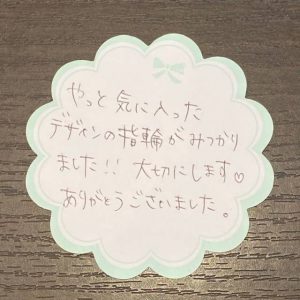 やっと気に入った
デザインの指輪がみつかり
ました!! 大切にします♡
ありがとうございました。